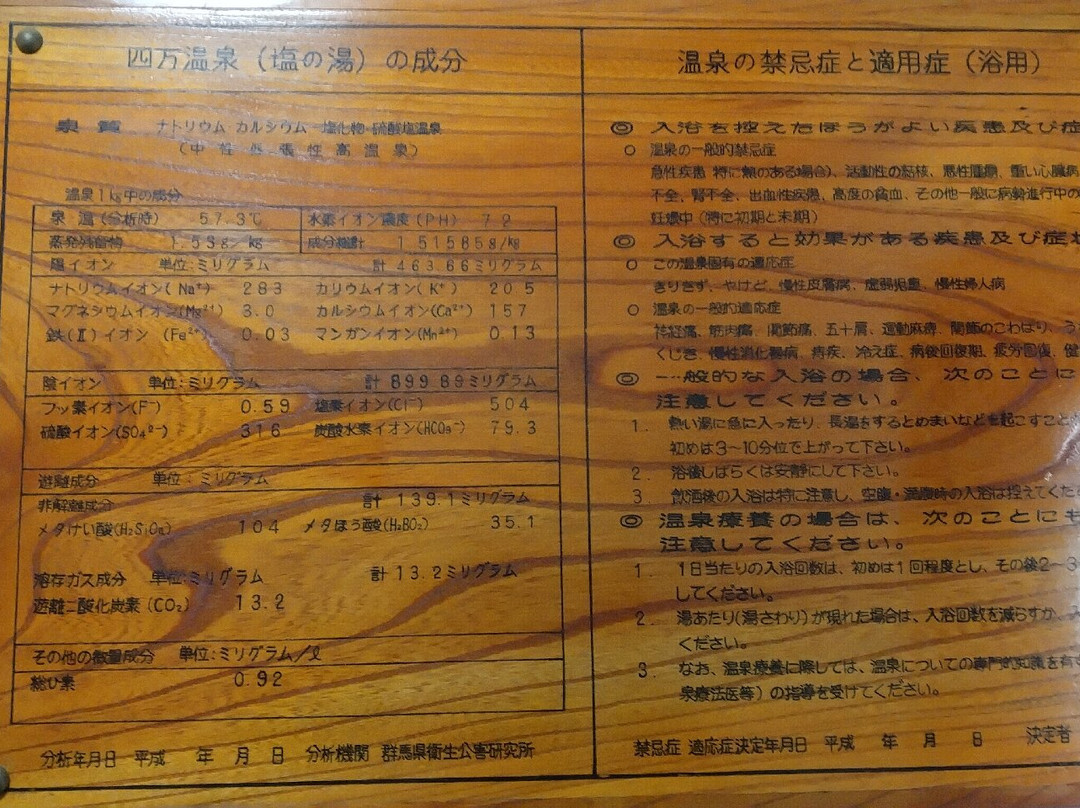 四万温泉（塩の湯）の成分
泉質　ナトリウム カルシウム―塩化物・硫酸塩温泉
（中性低張性高温泉）
温泉1kg中の成分
泉温（分析時）　57.3℃　水素イオン濃度（PH）　7.2
蒸発残留物　1.53g/kg　成分総計　1.51585g/kg
陽イオン　単位:ミリグラム　計 463.66ミリグラム
ナトリウムイオン(Na⁺)　283　カリウムイオン(K⁺)　20.5
マグネシウムイオン(Mg²⁺)　3.0　カルシウムイオン(Ca²⁺)　157
鉄(Ⅱ)イオン (Fe²⁺)　0.03　マンガンイオン(Mn²⁺)　0.13
陰イオン　単位:ミリグラム　計 899.89ミリグラム
フッ素イオン(F⁻)　0.59　塩素イオン(Cl⁻)　504
硫酸イオン(SO₄²⁻)　316　炭酸水素イオン(HCO₃⁻)　79.3
遊離成分　単位:ミリグラム
非解離成分　計 139.1ミリグラム
メタけい酸(H₂SiO₃)　104　メタほう酸(HBO₂)　35.1
溶存ガス成分　単位:ミリグラム　計13.2ミリグラム
遊離二酸化炭素(CO₂)　13.2
その他の微量成分　単位:ミリグラム/ℓ
総ひ素　0.92
分析年月日　平成　年　月　日　分析機関　群馬県衛生公害研究所
温泉の禁忌症と適用症（浴用）
◎ 入浴を控えたほうがよい疾患及び症
○ 温泉の一般的禁忌症
急性疾患 特に熱のある場合)、活動性の結核、悪性腫瘍、重い心臓病
不全、腎不全、出血性疾患、高度の貧血、その他一般に病勢進行中の
妊娠中（特に初期と末期）
◎ 入浴すると効果がある疾患及び症状
○ この温泉固有の適応症
きりきず、やけど、慢性皮膚病、虚弱児童、慢性婦人病
○ 温泉の一般的適応症
神経痛、筋肉痛、関節痛、五十肩、運動麻痺、関節のこわばり、う
くじき、慢性消化器病、痔疾、冷え症、病後回復期、疲労回復、健
◎ 一般的な入浴の場合、次のことに
注意してください。
1. 熱い湯に急に入ったり、長湯をするとめまいなどを起こすこと
初めは3～10分位で上がって下さい。
2. 浴後しばらくは安静にして下さい。
3. 飲酒後の入浴は特に注意し、空腹・満腹時の入浴は控えてくだ
◎ 温泉療養の場合は、次のことにも
注意してください。
1. 1日当たりの入浴回数は、初めは1回程度とし、その後2～3
してください。
2. 湯あたり(湯さわり)が現れた場合は、入浴回数を減らすか、
ください。
3. なお、温泉療養に際しては、温泉についての専門的知識を有
泉療法医等）の指導を受けてください。
禁忌症 適応症決定年月日　平成　年　月　日　決定者